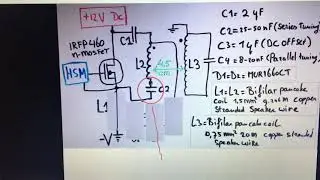 +12V DC
C1
C1= 2 µF
IRFP460
n-mosfet
C2=25-50nF (Series tuning)
L2
L3
C3=1µF (DC offset)
4,5
cm
C4
C4=8-20nF (Parallel tuning)
HSM
D1-D2= MUR1660CT
C2
L1=L2= Bifilar pancake
coil 1,5mm² copper
stranded Speaker wire
L1
L3=Bifilar pancake coil
-V
0,75mm² 20m copper stranded
Speaker wire